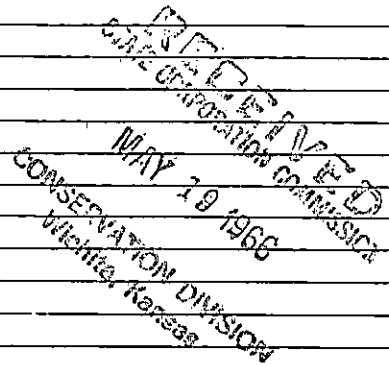 RECEIVED
STATE CORPORATION COMMISSION
MAY 19 1966
CONSERVATION DIVISION
Wichita, Kansas